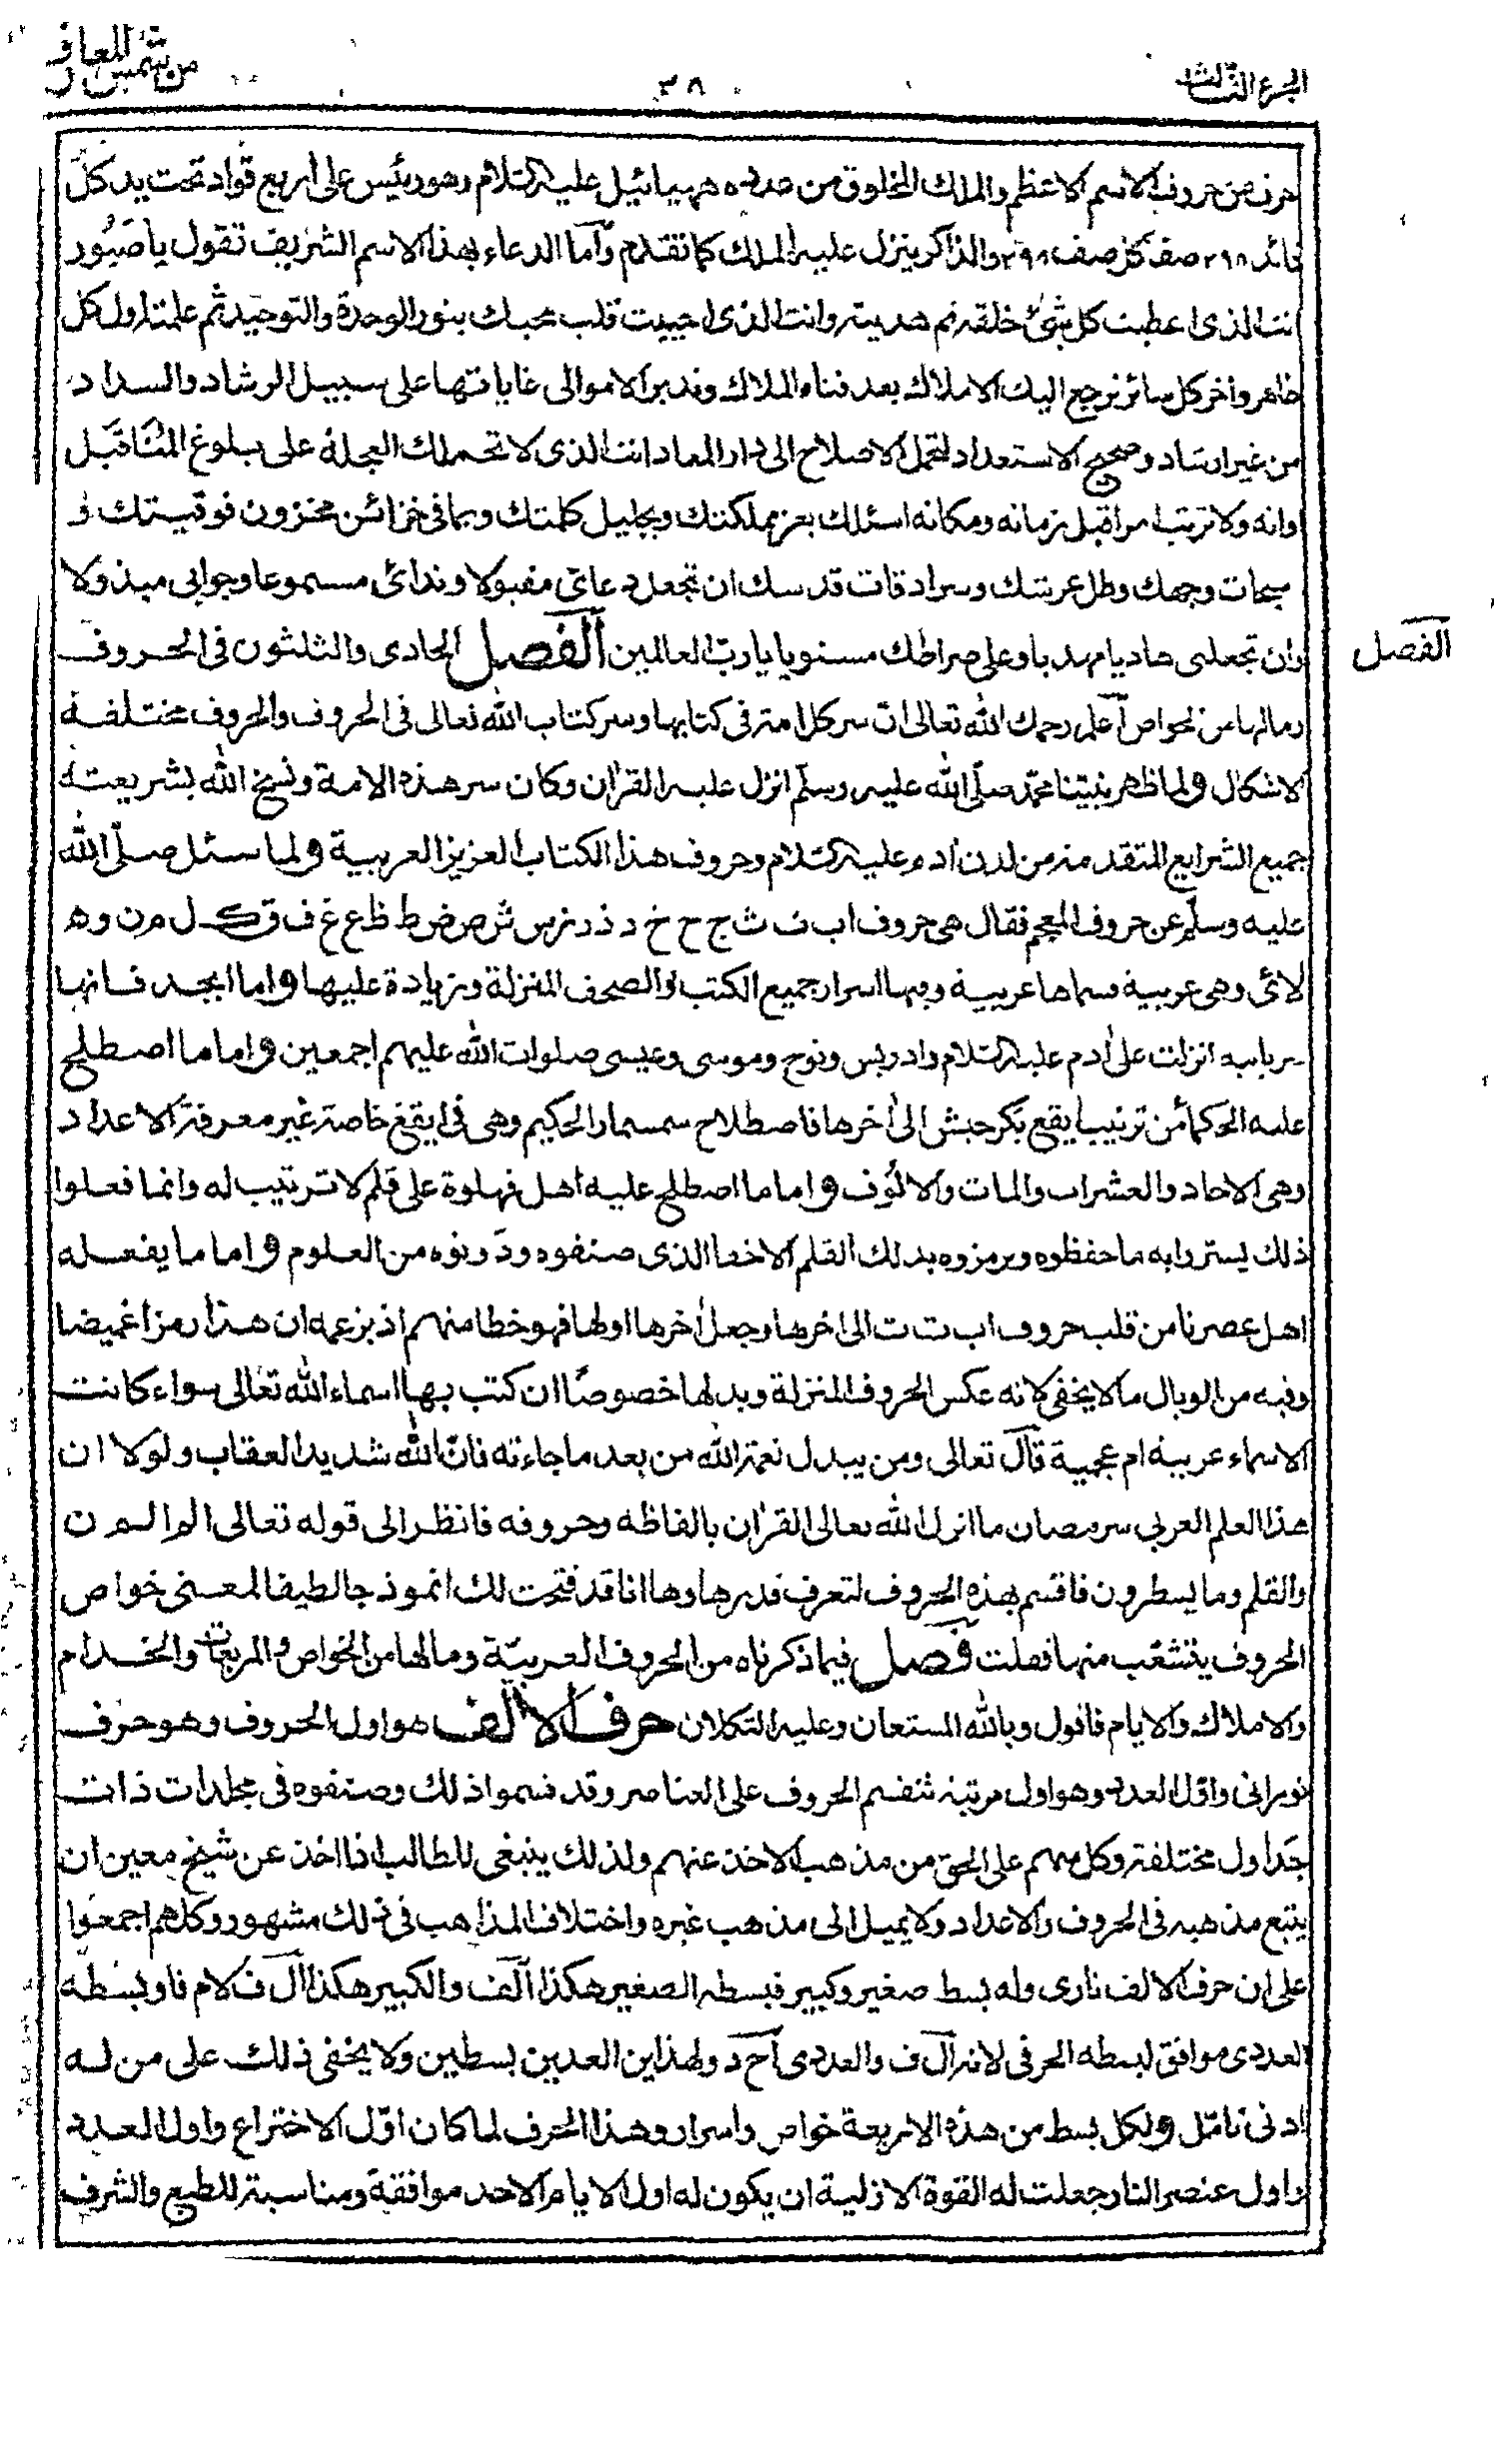 الجزء الثالث
٣٨
من شمس المعارف
حرف من حروف الاسم الاعظم والملك المخلوق من مدده ههيائيل عليه السلام وهو رئيس على أربع قواد تحت يد كل
قائد ٢٩٨ صف كل صف ٢٩٨ والذاكر ينزل عليه الملك كما تقدم وأما الدعاء بهذا الاسم الشريف تقول يا صبور
انت الذى اعطيت كل شئ خلقه ثم هديته وانت الذى احييت قلب محبك بنور الوحدة والتوحيد ثم علمته اول كل
ظاهر وأخر كل سائر نرجع اليك الاملاك بعد فناء الملاك وتدبر الامور الى غاياتها على سبيل الرشاد والسداد
من غير ارشاد وصحيح الاستعداد لتحمل الاصلاح الى دار المعاد انت الذى لا تحملك العجلة على بلوغ الشئ قبل
اوانه ولا ترتب امرا قبل زمانه ومكانه اسئلك بعز مملكتك وبجليل كلمتك وبما فى خزائن مخزون فوقيتك و
سبحات وجهك وظل عرشك وسرادقات قدسك ان تجعل دعائى مقبولا وندائى مسموعا وجوابى مبذولا
وان تجعلنى هاديا مهديا وعلى صراطك مستويا يا رب العالمين الفصل الحادى والثلثون فى الحروف
الفصل
وما لها من الخواص اعلم رحمك الله تعالى ان سر كل امة فى كتابها وسر كتاب الله تعالى فى الحروف والحروف مختلفة
الاشكال ولما ظهر نبينا محمد صلى الله عليه وسلم انزل عليه القرأن وكان سر هذه الامة ونسخ الله بشريعته
جميع الشرايع المتقدمة من لدن أدم عليه السلام وحروف هذا الكتاب العزيز العربية ولما سئل صلى الله
عليه وسلم عن حروف المعجم فقال هى حروف ا ب ت ث ج ح خ د ذ ر ز س ش ص ض ط ظ ع غ ف ق ك ل م ن و ه
لا ى وهى عربية وسماها عربية وبها اسرار جميع الكتب والصحف المنزلة وزيادة عليها واما ابجد فانها
سريانيه انزلت على أدم عليه السلام وادريس ونوح وموسى وعيسى صلوات الله عليهم اجمعين واما ما اصطلح
عليه الحكماء من ترتيب ايقغ بكر جبش الى أخرها فاصطلاح سمسمار الحكيم وهى فى ايقغ خاصة غير معرفة الاعداد
وهى الاحاد والعشرات والمات والالوف واما ما اصطلح عليه اهل نهلوة على قلم لا ترتيب له وانما فعلوا
ذلك ليستروا به ما حفظوه ويرمزوه بذلك القلم الاخفا الذى صنفوه ودونوه من العلوم واما ما يفعله
اهل عصرنا من قلب حروف ا ب ت ث الى اخرها وجعل أخرها اولها فهو خطا منهم اذ بزعمه ان هذا رمزا غميضا
وفيه من الوبال ما لا يخفى لانه عكس الحروف المنزلة وبدلها خصوصا ان كتب بها اسماء الله تعالى سواء كانت
الاسماء عربية ام عجمية قال تعالى ومن يبدل نعمة الله من بعد ما جاءته فان الله شديد العقاب ولولا ان
هذا العلم العربى سر مصان ما انزل الله تعالى القرأن بالفاظه وحروفه فانظر الى قوله تعالى الم المر ن
والقلم وما يسطرون فاقسم بهذه الحروف لتعرف قدرها وها انا قد فتحت لك انموذجا لطيفا لمعنى خواص
الحروف يتشعب منها فصلت فصل فيما ذكرناه من الحروف العربية وما لها من الخواص والمربعات والخدام
والاملاك والايام فاقول وبالله المستعان وعليه التكلان حرف الالف هو اول الحروف وهو حرف
نورانى واول العدد وهو اول مرتبة تنقسم الحروف على العناصر وقد قسموا ذلك وصنفوه فى مجلدات ذات
جداول مختلفة وكل منهم على الحق من مذهب الاخذ عنهم ولذلك ينبغى للطالب اذا اخذ عن شيخ معين ان
يتبع مذهبه فى الحروف والاعداد ولا يميل الى مذهب غيره واختلاف المذاهب فى ذلك مشهور وكلهم اجمعوا
على ان حرف الالف نارى وله بسط صغير وكبير فبسطه الصغير هكذا الف والكبير هكذا ال ف لام فا وبسطه
العددى موافق لبسطه الحرفى لانه ال ف والعددى أح د ولهذاين العددين بسطين ولا يخفى ذلك على من له
ادنى تامل ولكل بسط من هذه الاربعة خواص واسرار وهذا الحرف لما كان اول الاختراع واول العدد
واول عنصر النار جعلت له القوة الازلية ان يكون له اول الايام الاحد موافقة ومناسبة للطبع والشرف